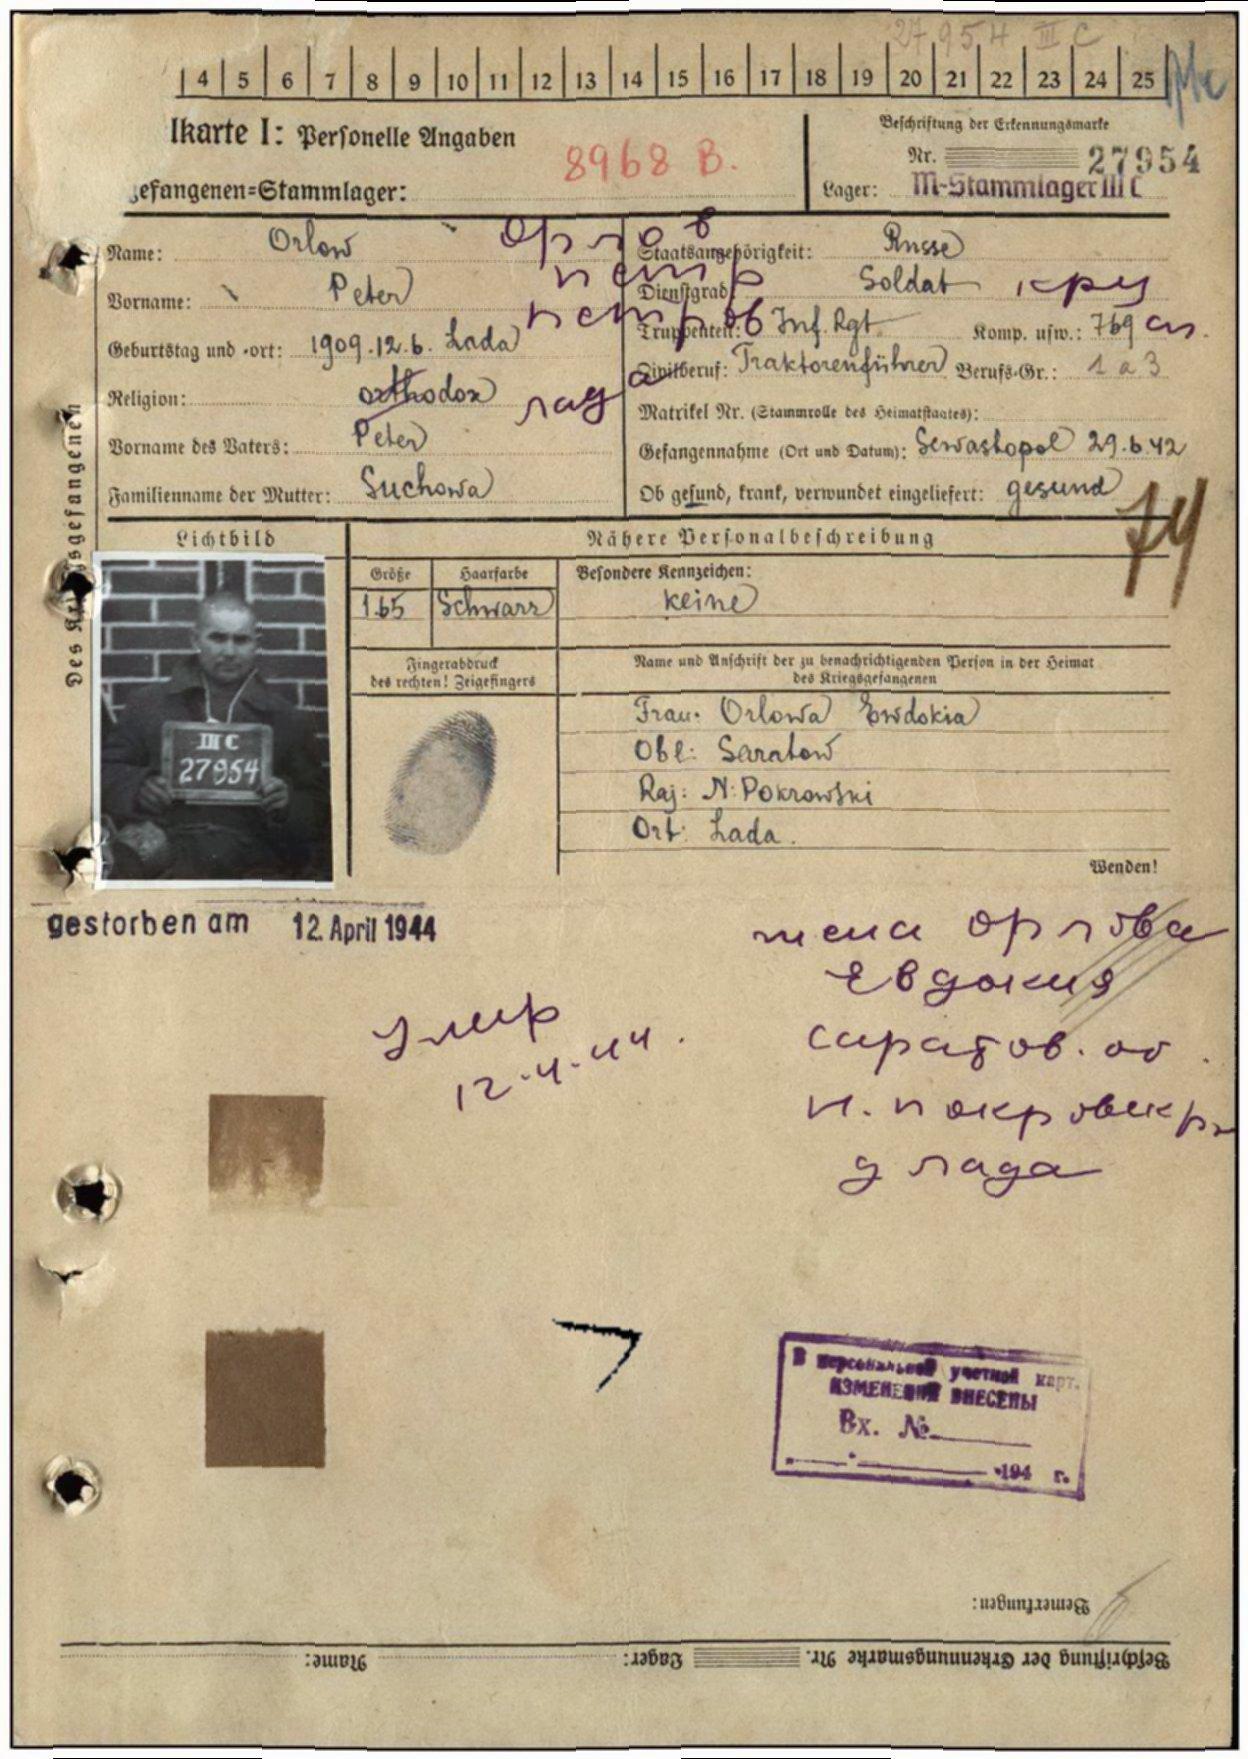 27954 III C
4 5 6 7 8 9 10 11 12 13 14 15 16 17 18 19 20 21 22 23 24 25
lkarte I: Personelle Angaben
8968 B.
Beschriftung der Erkennungsmarke
Nr. 27954
gefangenen=Stammlager:
Lager: M-Stammlager III C
Name: Orlow
орлов
Staatsangehörigkeit: Russe
Vorname: Peter
петр
Dienstgrad: Soldat
Geburtstag und -ort: 1909.12.6. Lada
петров
Truppenteil: Inf. Rgt. Komp. usw.: 769
Zivilberuf: Traktorenführer Berufs-Gr.: 1 a 3
Religion: orthodox
лада
Matrikel Nr. (Stammrolle des Heimatstaates):
Vorname des Vaters: Peter
Gefangennahme (Ort und Datum): Sewastopol 29.6.42
Familienname der Mutter: Suchowa
Ob gesund, krank, verwundet eingeliefert: gesund
74
Des Kriegsgefangenen
Lichtbild
Nähere Personalbeschreibung
Größe Haarfarbe Besondere Kennzeichen:
165 Schwarz keine
III C
27954
Fingerabdruck
des rechten! Zeigefingers
Name und Anschrift der zu benachrichtigenden Person in der Heimat
des Kriegsgefangenen
Frau: Orlowa Ewdokia
Obl: Saratow
Raj: N: Pokrowski
Ort: Lada.
Wenden!
gestorben am 12. April 1944
жена орлова
Евдокия
саратов. об.
н. покровск р
д лада
умер
12.4.44.
В персональной учетной карт.
ИЗМЕНЕНИЯ ВНЕСЕНЫ
Вх. №
194 г.
Bemerkungen:
Beschriftung der Erkennungsmarke Nr. Lager: Name: